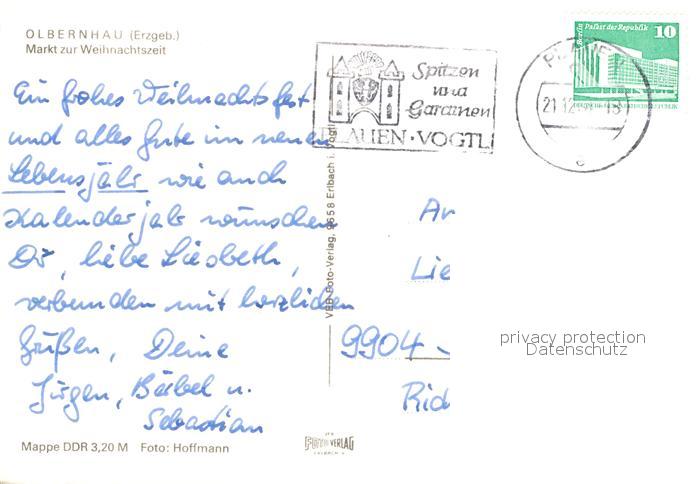 OLBERNHAU (Erzgeb.)
Markt zur Weihnachtszeit
Ein frohes Weihnachtsfest
und alles Gute im neuen
Lebensjahr wie auch
Kalenderjahr wünschen
Dir, liebe Liesbeth,
verbunden mit herzlichen
Grüßen, Deine
Jürgen, Bärbel u.
Sebastian
Mappe DDR 3,20 M Foto: Hoffmann
VEB Foto-Verlag, 9658 Erlbach i. Vogtl.
VERLAG
Spitzen
und
Gardinen
PLAUEN · VOGTL
PLAUEN
21.12.
Berlin Palast der Republik 10
An
Lie
9904
Rid
privacy protection
Datenschutz